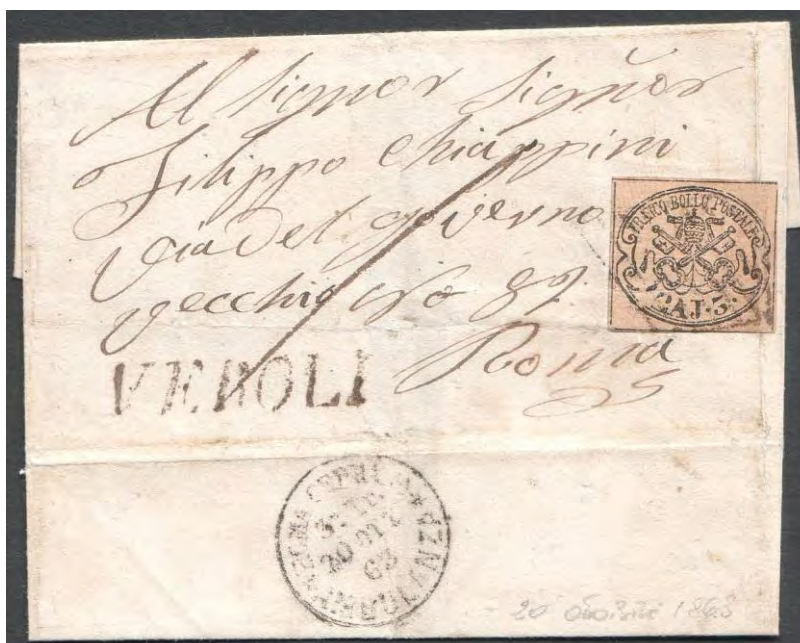 Al Signor Signor
Filippo Chiappini
via del governo
vecchio No 82
Roma
FRANCO BOLLO POSTALE
BAJ. 3.
VEROLI
ROMA
20
63
20 1863